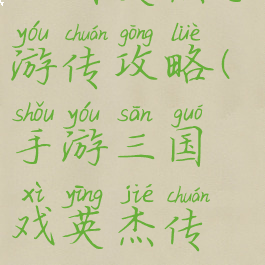 yóu chuán gōng lüè
游传攻略(
shǒu yóu sān guó
手游三国
xì yīng jié chuán
戏英杰传